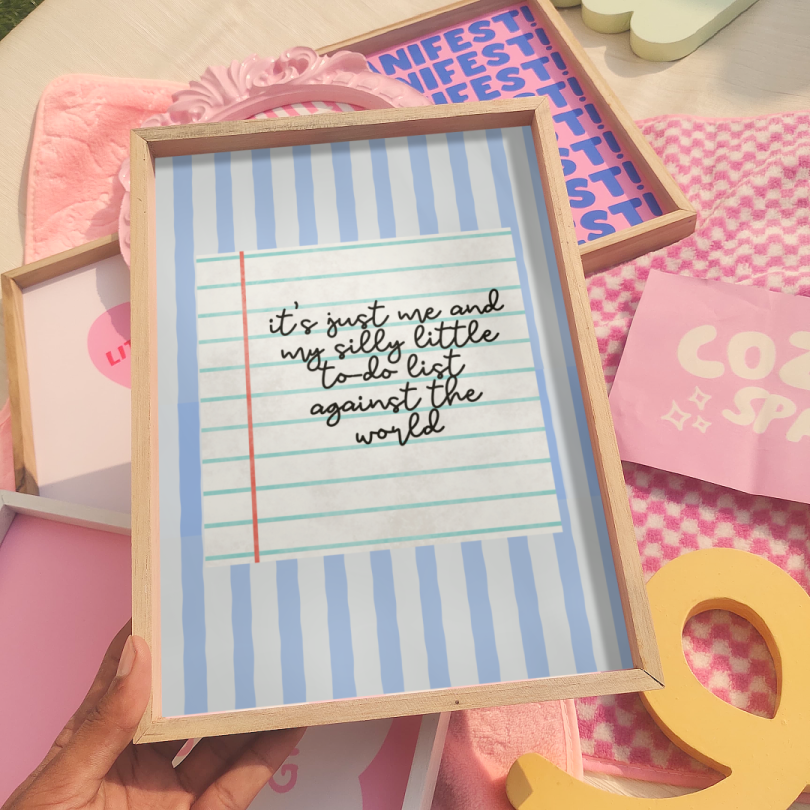 NIFEST!
NIFEST!
NIFEST!
EST!!
EST!!
it's just me and
my silly little
to-do list
against the
world
LIT
COZ
SP
G